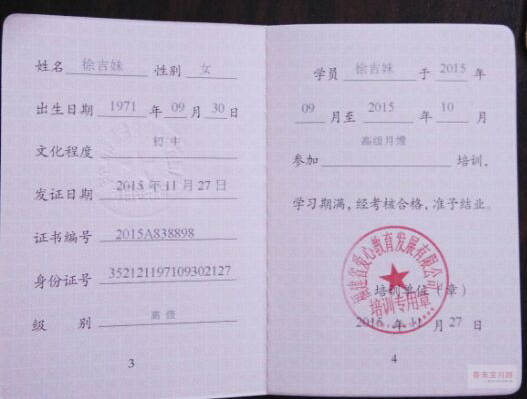 姓名 徐吉妹 性别 女
出生日期 1971 年 09 月 30 日
文化程度 初中
发证日期 2015 年 11 月 27 日
证书编号 2015A838898
身份证号 352121197109302127
级 别 高级
3
学员 徐吉妹 于 2015 年
09 月至 2015 年 10 月
参加 高级月嫂 培训,
学习期满,经考核合格,准予结业。
福建省爱心教育发展有限公司
培训专用章
培训单位(章)
2015 年 11 月 27 日
4